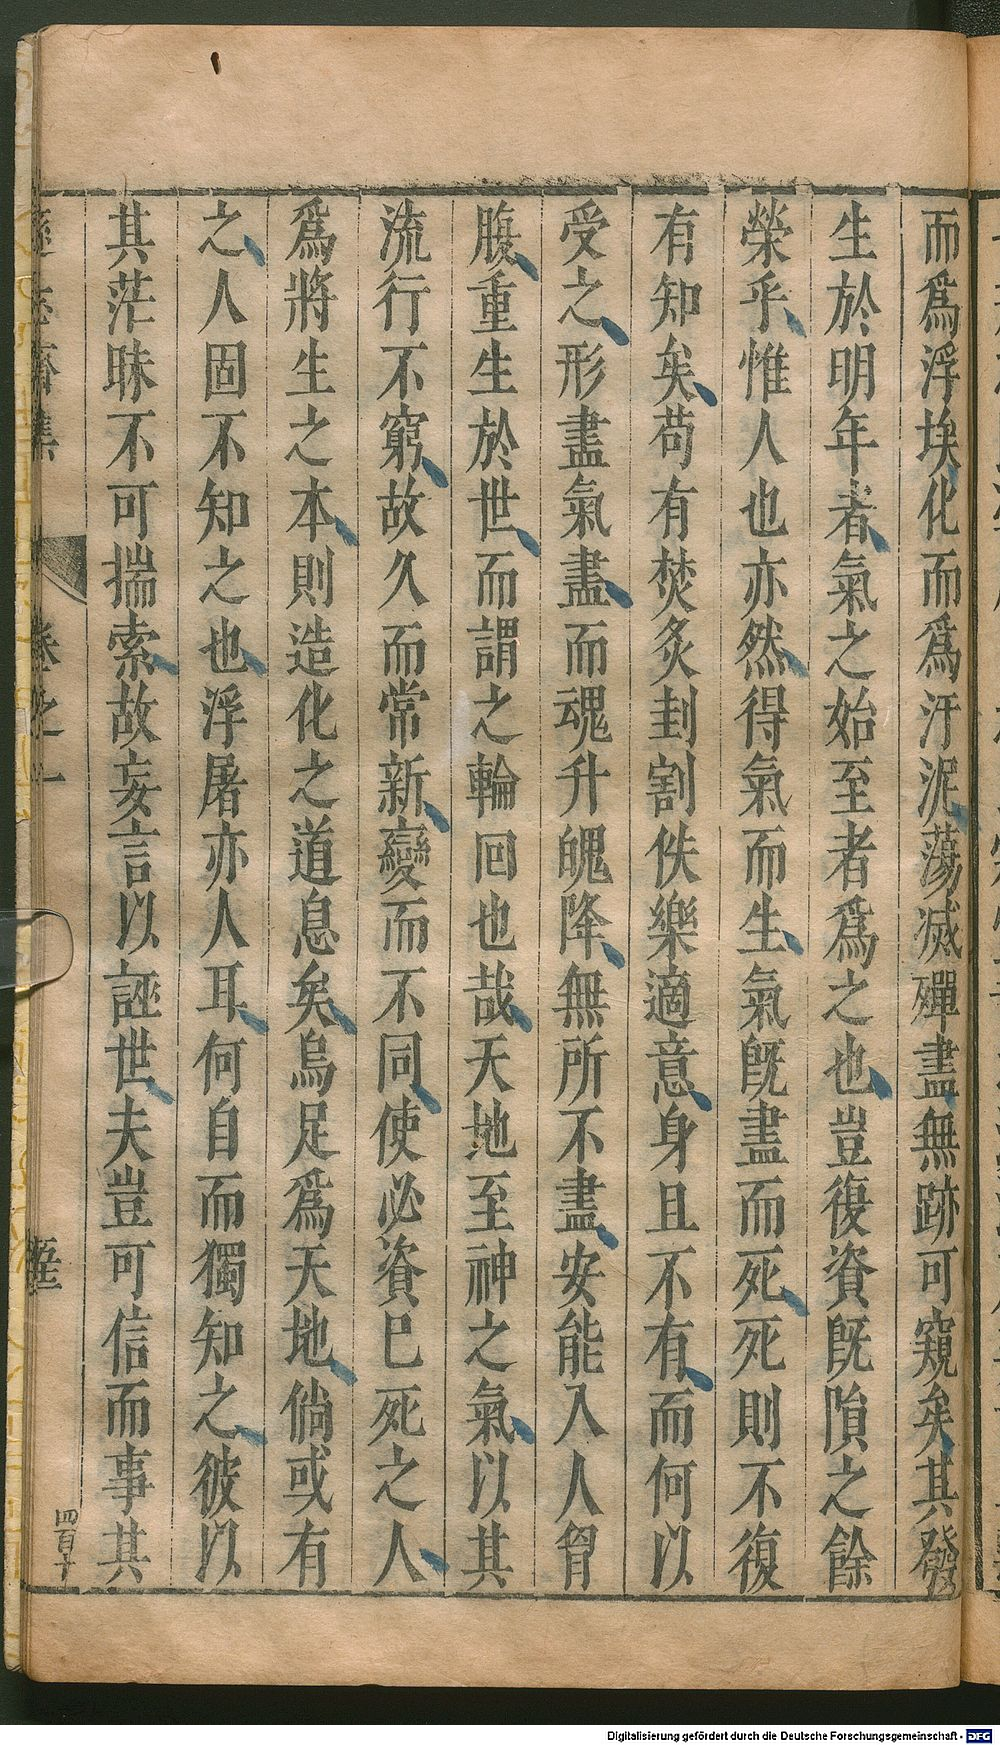 而爲浮埃化而爲汙泥蕩滅殫盡無跡可窺矣其發
生於明年者氣之始至者爲之也豈復資旣隕之餘
榮乎惟人也亦然得氣而生氣旣盡而死死則不復
有知矣苟有焚炙刲割佚樂適意身且不有而何以
受之形盡氣盡而魂升魄降無所不盡安能入人胷
腹重生於世而謂之輪囘也哉天地至神之氣以其
流行不窮故久而常新變而不同使必資已死之人
爲將生之本則造化之道息矣烏足爲天地倘或有
之人固不知之也浮屠亦人耳何自而獨知之彼以
其茫昧不可揣索故妄言以誣世夫豈可信而事其
遜志齋集
卷之一
四百十
Digitalisierung gefördert durch die Deutsche Forschungsgemeinschaft - DFG